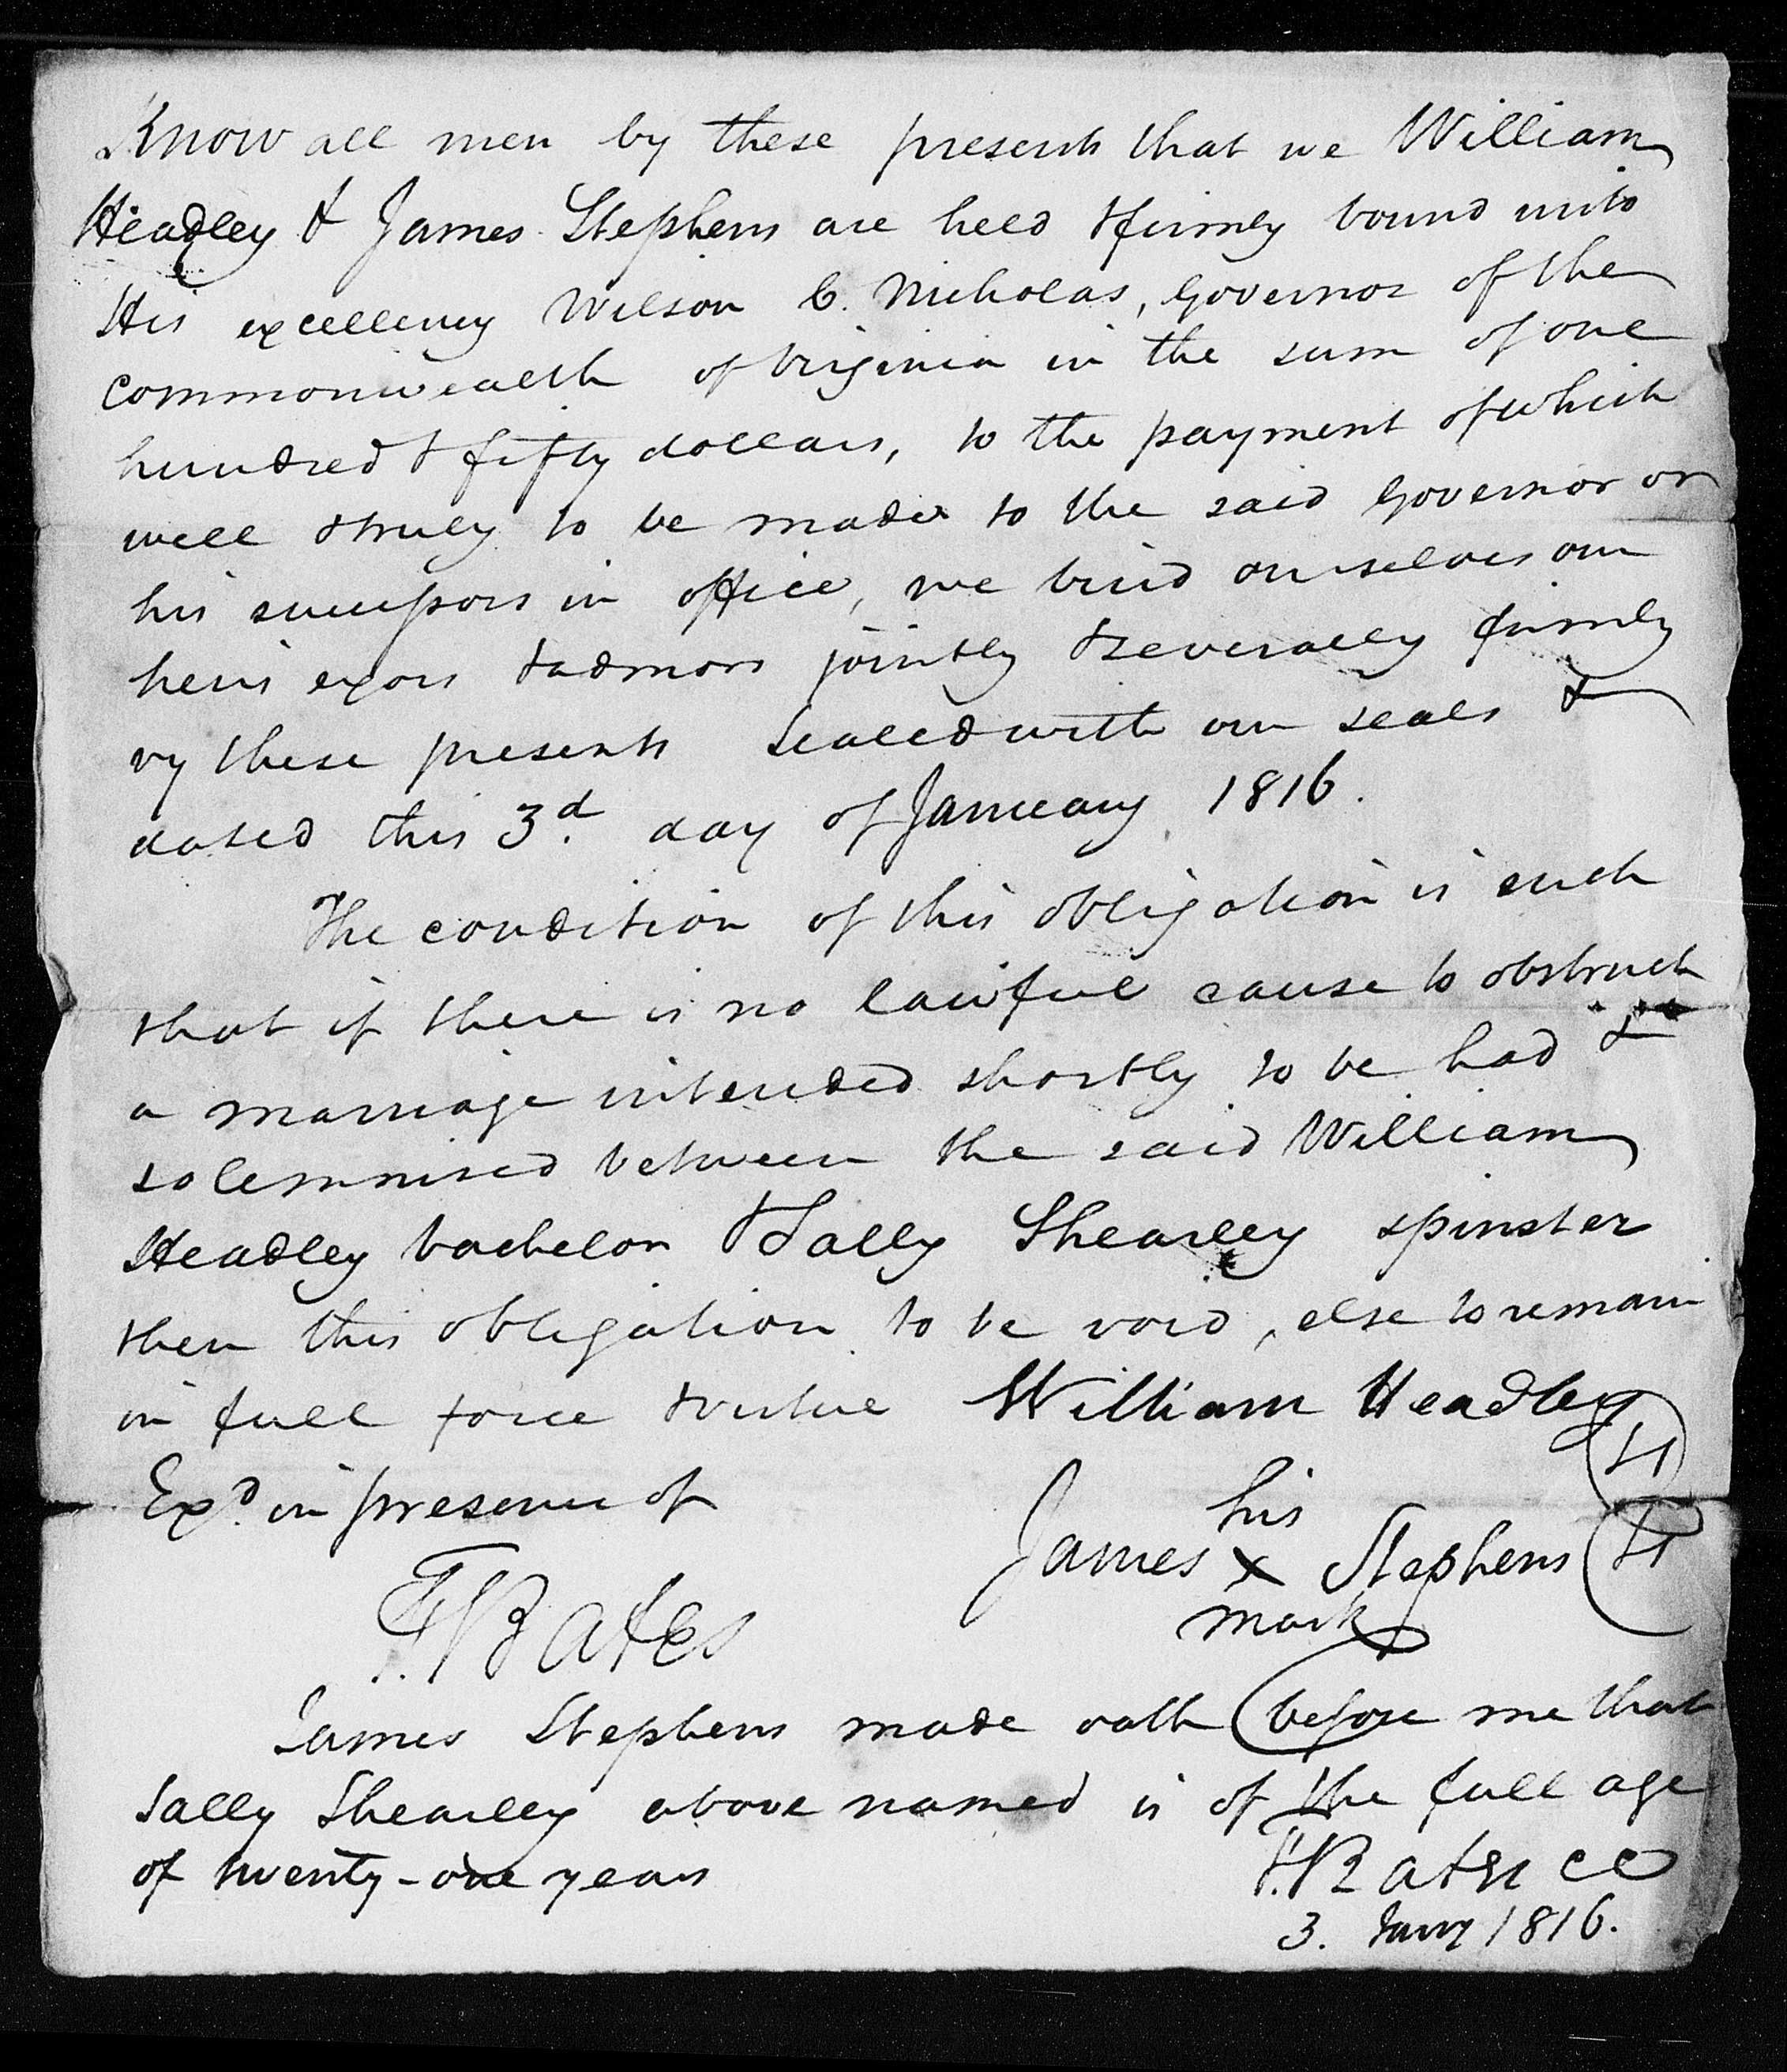 Know all men by these presents that we William
Headley & James Stephens are held & firmly bound unto
His excellency Wilson C. Nicholas, Governor of the
Commonwealth of Virginia in the sum of one
hundred & fifty dollars, to the payment of which
well & truly to be made to the said Governor or
his successors in office, we bind ourselves our
heirs exors & admors jointly & severally firmly
by these presents Sealed with our seals &
dated this 3d. day of January 1816.
The condition of this obligation is such
that if there is no lawful cause to obstruct
a marriage intended shortly to be had &
solemnised between the said William
Headley bachelor & Sally Shearley spinster
then this obligation to be void, else to remain
in full force & virtue William Headley
Exd. in presence of
his
James x Stephens
mark
F. Bates
James Stephens made oath before me that
Sally Shearley above named is of the full age
of twenty-one years
F. Bates CC
3. Jany 1816.